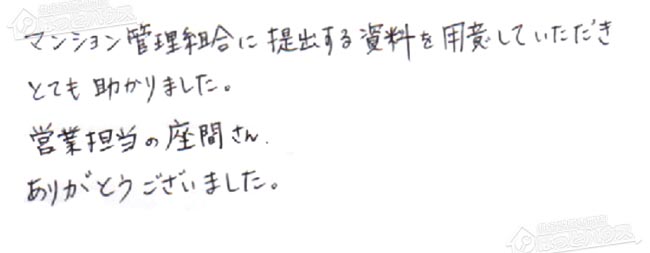 マンション管理組合に提出する資料を用意していただき
とても助かりました。
営業担当の座間さん.
ありがとうございました。